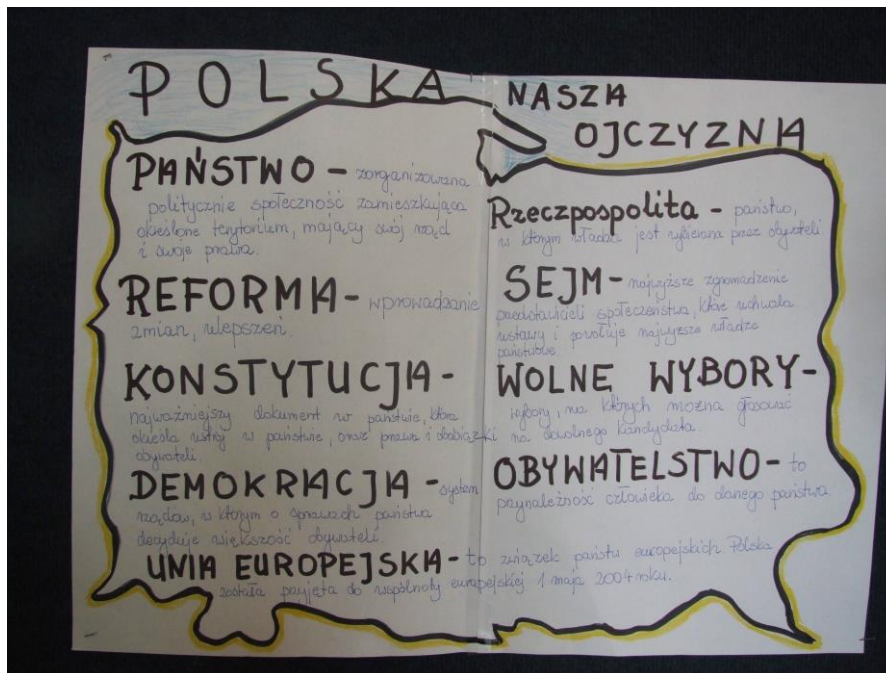 POLSKA NASZA
OJCZYZNA
PAŃSTWO - zorganizowana
politycznie społeczność zamieszkująca
określone terytorium, mający swój rząd
i swoje prawa.
REFORMA - wprowadzanie
zmian, ulepszeń.
KONSTYTUCJA -
najważniejszy dokument w państwie, która
określa ustrój w państwie, oraz prawa i obowiązki
obywateli.
DEMOKRACJA - system
rządów, w którym o sprawach państwa
decyduje większość obywateli.
Rzeczpospolita - państwo,
w którym władza jest wybierana przez obywateli.
SEJM - najwyższe zgromadzenie
przedstawicieli społeczeństwa, które uchwala
ustawy i powołuje najwyższe władze
państwowe.
WOLNE WYBORY -
wybory, na których można głosować
na dowolnego kandydata.
OBYWATELSTWO - to
przynależność człowieka do danego państwa
UNIA EUROPEJSKA - to związek państw europejskich. Polska
została przyjęta do wspólnoty europejskiej 1 maja 2004 roku.